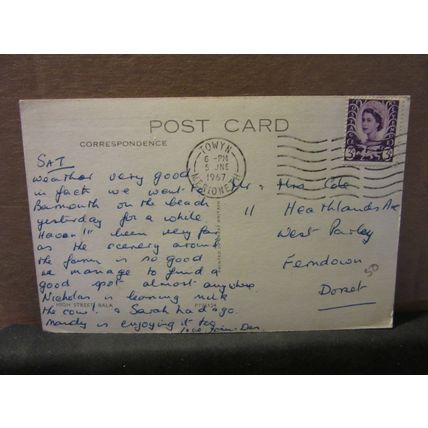 POST CARD
CORRESPONDENCE
TOWYN
6 - PM
5 JNE
1967
MERIONETH
SAT
Weather very good
in fact we went to
Barmouth on the beach
yesterday for a while
Haven't been very far
as the scenery around
the farm is so good
we manage to find a
good spot almost anywhere
Nicholas is learning milk
the cow. & Sarah had a go.
Mandy is enjoying it too
love
Den
HIGH STREET BALA
Mr & Mrs Cole
11 Heathlands Ave
West Parley
Ferndown
Dorset
50